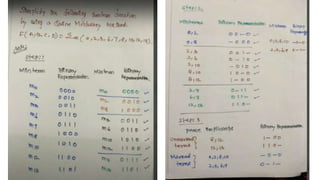 Simplify the following boolean function
by using a Quine McCluskey method
F(A,B,C,D) = Σm (0,2,3,6,7,8,10,12,13)
Step:1
Minterm Binary Representation Minterm Binary Representation
m0 0000 m0 0000 ✓
m2 0010 m2 0010 ✓
m3 0011 m8 1000 ✓
m6 0110 m3 0011 ✓
m7 0111 m6 0110 ✓
m8 1000 m10 1010 ✓
m10 1010 m12 1100 ✓
m12 1100 m7 0111 ✓
m13 1101 m13 1101 ✓
Step:2
Minterms Binary Representation Minterms Binary Representation
0,2 00-0 ✓
0,8 -000 ✓
2,3 001- ✓
2,6 0-10 ✓
2,10 -010 ✓
8,10 10-0 ✓
8,12 1-00
3,7 0-11 ✓
6,7 011- ✓
12,13 110-
Step 3
Prime Implicants Binary Representation
8,12 1-00
12,13 110-
0,2,8,10 -0-0
2,3,6,7 0-1-